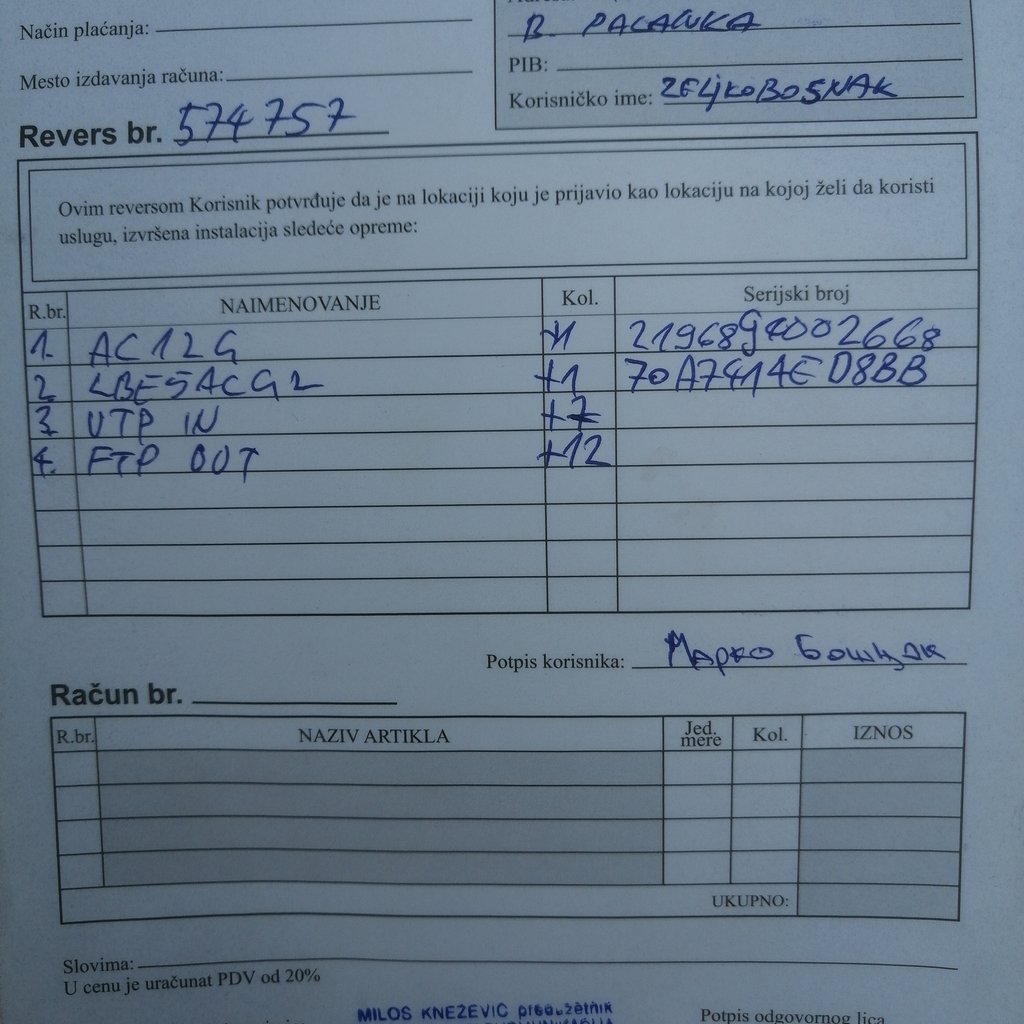 Način plaćanja:
B. PALANKA
Mesto izdavanja računa:
PIB:
Korisničko ime: ZELJKOBOSNAK
Revers br. 574757
Ovim reversom Korisnik potvrđuje da je na lokaciji koju je prijavio kao lokaciju na kojoj želi da koristi
uslugu, izvršena instalacija sledeće opreme:
R.br. NAIMENOVANJE Kol. Serijski broj
1. AC12G +1 2196894002668
2 LBE5ACG2 +1 70A7414ED8BB
3. UTP IN +7
4. FTP OUT +12
Potpis korisnika: Марко Бошњак
Račun br.
R.br. NAZIV ARTIKLA Jed. mere Kol. IZNOS
UKUPNO:
Slovima:
U cenu je uračunat PDV od 20%
MILOS KNEŽEVIĆ preduzetnik
Potpis odgovornog lica